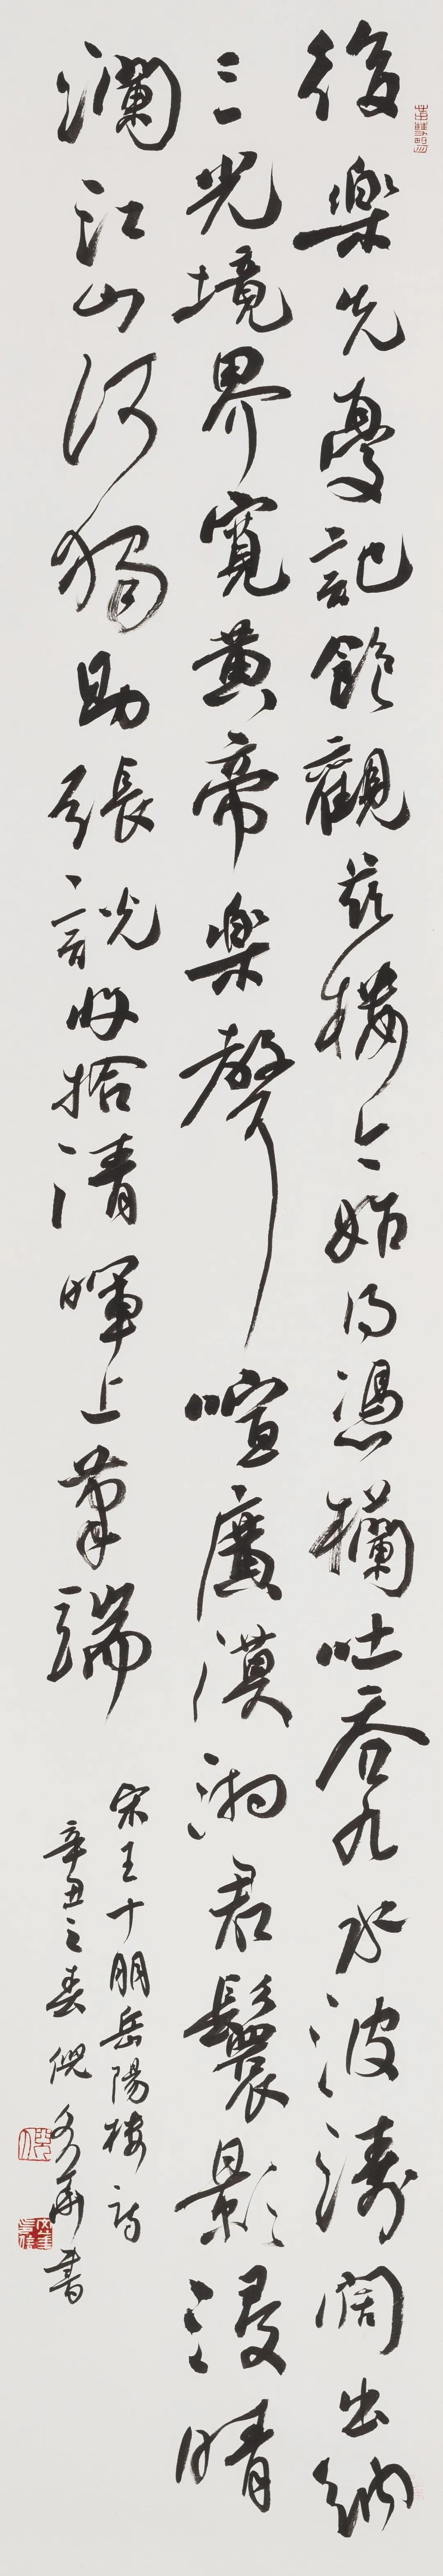 後樂先憂記飽觀茲樓今始得憑欄吐吞九水波濤闊出納
三光境界寬黃帝樂聲喧廣漠湘君鬟影浸晴
瀾江山何獨助張說收拾清暉上筆端
宋王十朋岳陽樓詩
辛丑之春倪 書